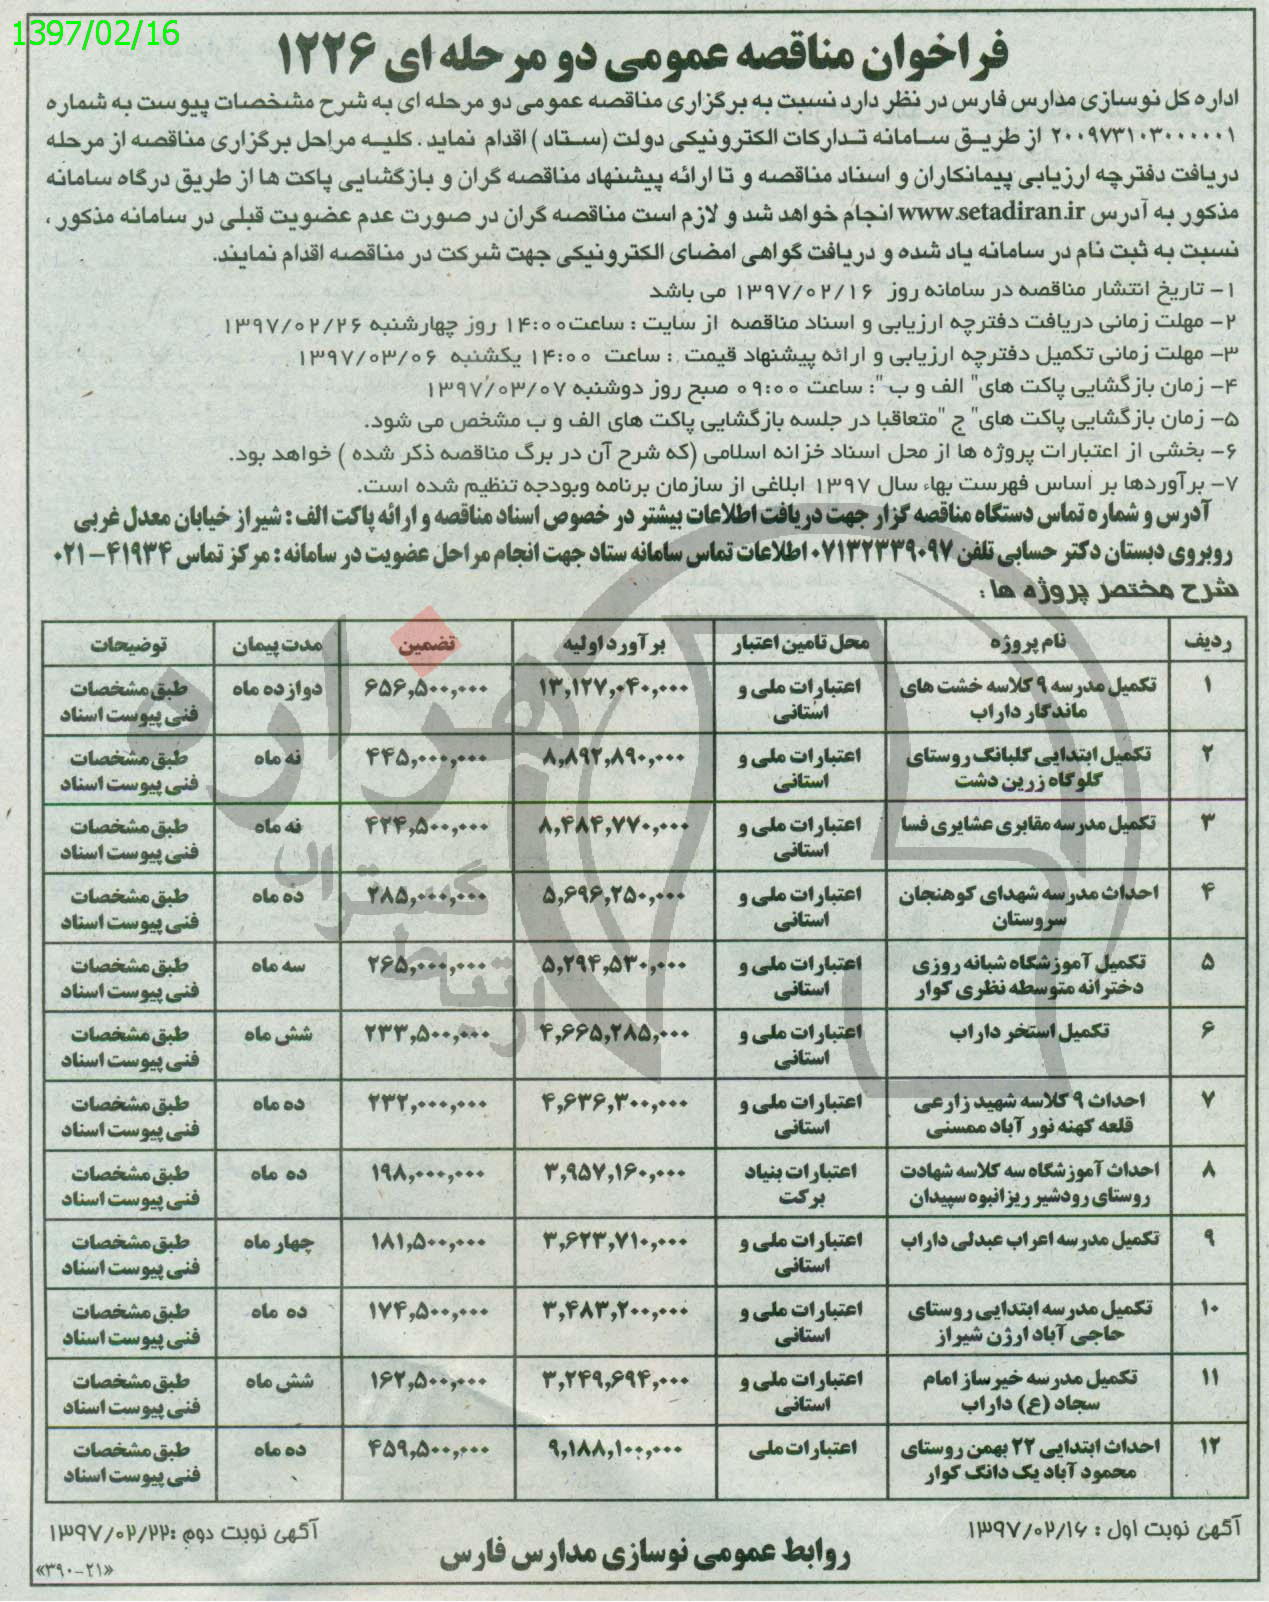 1397/02/16
فراخوان مناقصه عمومی دو مرحله ای ۱۲۲۶
اداره کل نوسازی مدارس فارس در نظر دارد نسبت به برگزاری مناقصه عمومی دو مرحله ای به شرح مشخصات پیوست به شماره
۲۰۰۹۷۳۱۰۳۰۰۰۰۰۱ از طریق سامانه تدارکات الکترونیکی دولت (ستاد) اقدام نماید. کلیه مراحل برگزاری مناقصه از مرحله
دریافت دفترچه ارزیابی پیمانکاران و اسناد مناقصه و تا ارائه پیشنهاد مناقصه گران و بازگشایی پاکت ها از طریق درگاه سامانه
مذکور به آدرس www.setadiran.ir انجام خواهد شد و لازم است مناقصه گران در صورت عدم عضویت قبلی در سامانه مذکور،
نسبت به ثبت نام در سامانه یاد شده و دریافت گواهی امضای الکترونیکی جهت شرکت در مناقصه اقدام نمایند.
۱- تاریخ انتشار مناقصه در سامانه روز ۱۳۹۷/۰۲/۱۶ می باشد
۲- مهلت زمانی دریافت دفترچه ارزیابی و اسناد مناقصه از سایت : ساعت ۱۴:۰۰ روز چهارشنبه ۱۳۹۷/۰۲/۲۶
۳- مهلت زمانی تکمیل دفترچه ارزیابی و ارائه پیشنهاد قیمت : ساعت ۱۴:۰۰ یکشنبه ۱۳۹۷/۰۳/۰۶
۴- زمان بازگشایی پاکت های" الف و ب ": ساعت ۰۹:۰۰ صبح روز دوشنبه ۱۳۹۷/۰۳/۰۷
۵- زمان بازگشایی پاکت های" ج "متعاقبا در جلسه بازگشایی پاکت های الف و ب مشخص می شود.
۶- بخشی از اعتبارات پروژه ها از محل اسناد خزانه اسلامی (که شرح آن در برگ مناقصه ذکر شده ) خواهد بود.
۷- برآوردها بر اساس فهرست بهاء سال ۱۳۹۷ ابلاغی از سازمان برنامه وبودجه تنظیم شده است.
آدرس و شماره تماس دستگاه مناقصه گزار جهت دریافت اطلاعات بیشتر در خصوص اسناد مناقصه و ارائه پاکت الف : شیراز خیابان معدل غربی
روبروی دبستان دکتر حسابی تلفن ۰۷۱۳۲۳۳۹۰۹۷ اطلاعات تماس سامانه ستاد جهت انجام مراحل عضویت در سامانه : مرکز تماس ۴۱۹۳۴-۰۲۱
شرح مختصر پروژه ها :
ردیف نام پروژه محل تامین اعتبار برآورد اولیه تضمین مدت پیمان توضیحات
۱ تکمیل مدرسه ۹ کلاسه خشت های اعتبارات ملی و ۱۳,۱۲۷,۰۴۰,۰۰۰ ۶۵۶,۵۰۰,۰۰۰ دوازده ماه طبق مشخصات
ماندگار داراب استانی فنی پیوست اسناد
۲ تکمیل ابتدایی گلبانگ روستای اعتبارات ملی و ۸,۸۹۲,۸۹۰,۰۰۰ ۴۴۵,۰۰۰,۰۰۰ نه ماه طبق مشخصات
گلوگاه زرین دشت استانی فنی پیوست اسناد
۳ تکمیل مدرسه مقابری عشایری فسا اعتبارات ملی و ۸,۴۸۴,۷۷۰,۰۰۰ ۴۲۴,۵۰۰,۰۰۰ نه ماه طبق مشخصات
استانی فنی پیوست اسناد
۴ احداث مدرسه شهدای کوهنجان اعتبارات ملی و ۵,۶۹۶,۲۵۰,۰۰۰ ۲۸۵,۰۰۰,۰۰۰ ده ماه طبق مشخصات
سروستان استانی فنی پیوست اسناد
۵ تکمیل آموزشگاه شبانه روزی اعتبارات ملی و ۵,۲۹۴,۵۳۰,۰۰۰ ۲۶۵,۰۰۰,۰۰۰ سه ماه طبق مشخصات
دخترانه متوسطه نظری کوار استانی فنی پیوست اسناد
۶ تکمیل استخر داراب اعتبارات ملی و ۴,۶۶۵,۲۸۵,۰۰۰ ۲۳۳,۵۰۰,۰۰۰ شش ماه طبق مشخصات
استانی فنی پیوست اسناد
۷ احداث ۹ کلاسه شهید زارعی اعتبارات ملی و ۴,۶۳۶,۳۰۰,۰۰۰ ۲۳۲,۰۰۰,۰۰۰ ده ماه طبق مشخصات
قلعه کهنه نور آباد ممسنی استانی فنی پیوست اسناد
۸ احداث آموزشگاه سه کلاسه شهادت اعتبارات بنیاد ۳,۹۵۷,۱۶۰,۰۰۰ ۱۹۸,۰۰۰,۰۰۰ ده ماه طبق مشخصات
روستای رودشیر ریزانبوه سپیدان برکت فنی پیوست اسناد
۹ تکمیل مدرسه اعراب عبدلی داراب اعتبارات ملی و ۳,۶۲۳,۷۱۰,۰۰۰ ۱۸۱,۵۰۰,۰۰۰ چهار ماه طبق مشخصات
استانی فنی پیوست اسناد
۱۰ تکمیل مدرسه ابتدایی روستای اعتبارات ملی و ۳,۴۸۳,۲۰۰,۰۰۰ ۱۷۴,۵۰۰,۰۰۰ ده ماه طبق مشخصات
حاجی آباد ارژن شیراز استانی فنی پیوست اسناد
۱۱ تکمیل مدرسه خیرساز امام اعتبارات ملی و ۳,۲۴۹,۶۹۴,۰۰۰ ۱۶۲,۵۰۰,۰۰۰ شش ماه طبق مشخصات
سجاد (ع) داراب استانی فنی پیوست اسناد
۱۲ احداث ابتدایی ۲۲ بهمن روستای اعتبارات ملی ۹,۱۸۸,۱۰۰,۰۰۰ ۴۵۹,۵۰۰,۰۰۰ ده ماه طبق مشخصات
محمود آباد یک دانگ کوار فنی پیوست اسناد
آگهی نوبت اول : ۱۳۹۷/۰۲/۱۶ آگهی نوبت دوم :۱۳۹۷/۰۲/۲۲
روابط عمومی نوسازی مدارس فارس
«۳۹۰-۲۱»
هزاره
گستران
ارتباط